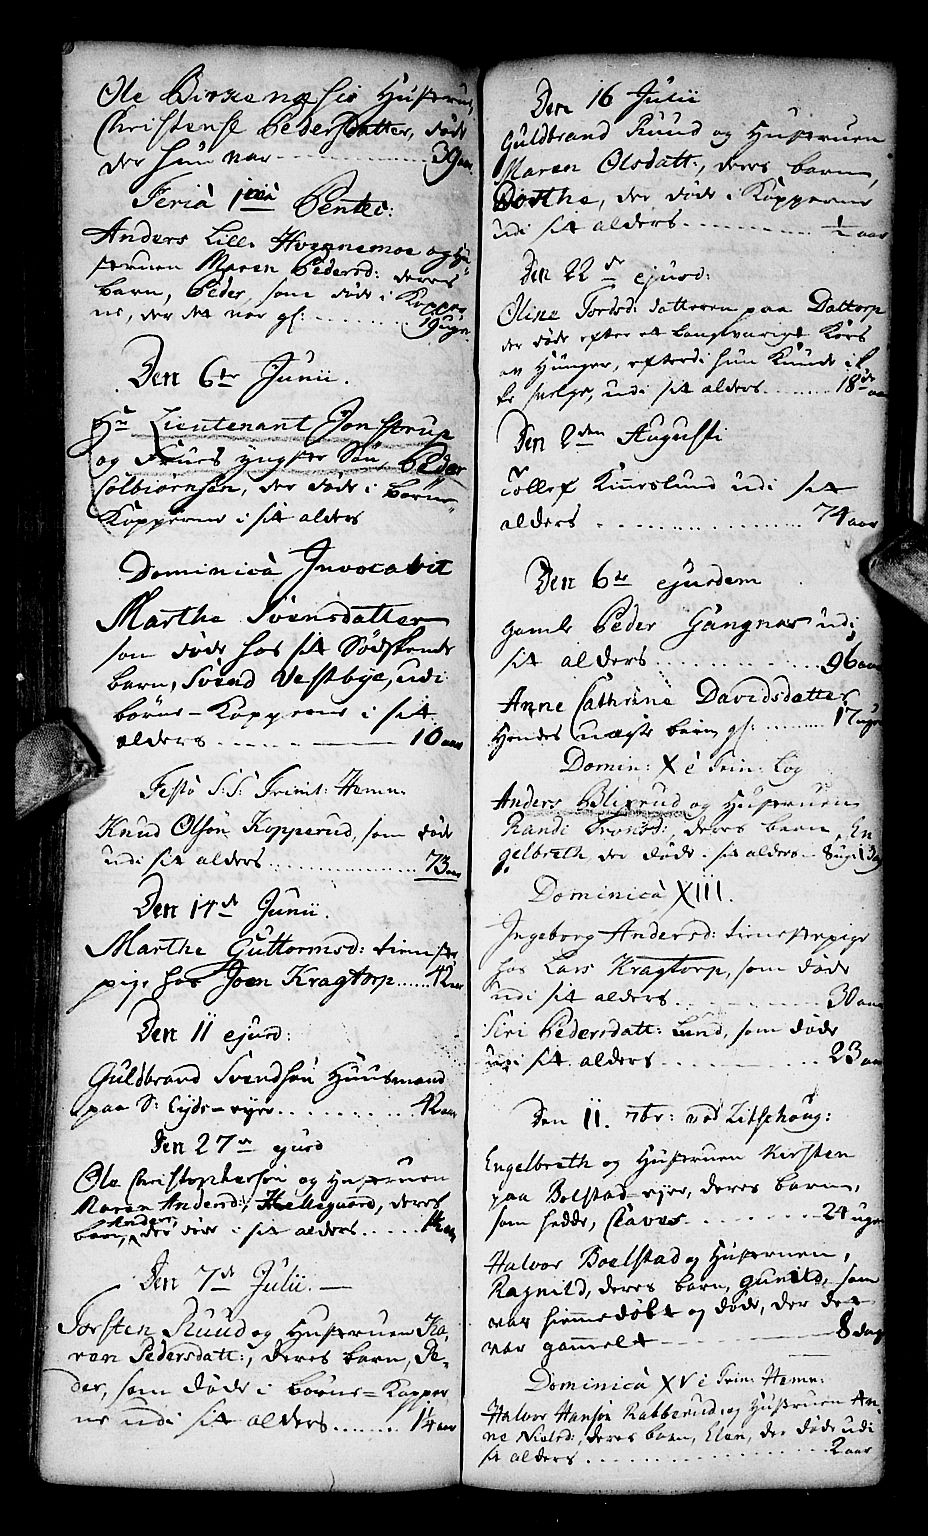 Ole Birkenæsis Hustrue,
Christense Pedersdatter, døde
der hun var - - - - - - 39 aar.
Feriâ 1ma Pentec:
Anders Lille Hvennemoe og Hu-
struen Maren Pedersd: deres
barn, Peder, som døde i Koppe-
ne, der det var gl: . . . . . . 19 uger
Den 6te Junii.
Hr Lieutenant Jonstrup
og Frues yngste Søn, Peder
Colbiørnsen, der døde i børne-
Kopperne i sit alders
Dominicâ Invocabit
Marthe Svensdatter
som døde hos sit Sødskende
barn, Svend Vestbye, udi
børne-Kopperne i sit
alders . . . . . 10 aar
Festo S:S: Trinit: Hemn:
Knud Olsøn Kopperud, som døde
udi sit alders . . . . . . . . . 73 aar
Den 14de Junii.
Marthe Guttormsd: tieneste-
pige hos Joen Kragtorp . . . . . 42 aar
Den 11 ejusd:
Guldbrand Svendsøn Huusmand
paa S: Eyds-eyer . . . . . . . 42 aar
Den 27de ejusd
Ole Christophersøn og Hustruen
Maren Andersd: Hellegaard, deres
Anders,
barn, der døde i sit alders . . . . . 1½ aar
Den 7de Julii. —
Torsten Ruud og Hustruen Ka-
ren Pedersdatt:, deres barn, Pe-
der, som døde i børne-Kopper
ne udi sit alders . . . . . . . 1¼ aar
Den 16 Julii
Guldbrand Ruud og Hustruen
Maren Olsdatt:, deres barn,
Dorthe, der døde i Kopperne
udi sit alders . . . . . . . . . ½ aar
Den 22de ejusd:
Oline Tordsd: datteren paa Dattorp
der døde efter et langvarigt Kors
av Hunger, efterdi hun kunde ik-
ke sælge, udi sit alders . . . . . . 18de aar
Den 2den Augusti
Tollef Kinneslund udi sit
alders . . . . . . . . . . . . . . 74 aar
Den 6te ejusdem
gamle Peder Gangnæs udi
sit alders . . . . . . . . . . . 96 aar
Anne Cathrine Davidsdatter
Hendes uægte barn gl: . . . . . 17 uger
Domin: X i Trin: Eog
Anders Blixrud og Hustruen
Randi Tronsd: deres barn, En
gelbreth der døde i sit alders . . 8 ug: 13 dag
Dominicâ XIII.
Ingeborg Andersd: tienestepige
hos Lars Kragtorp, som døde
udi sit alders . . . . . . . . . . 30 aar
Siri Pedersdatt: Lund, som døde
udi sit alders . . . . . . . . . 23 aar
Den 11. 7br: ved Litschoug:
Engelbreth og Hustruen Kirsten
paa Bolstad-eyer, deres barn,
som hedde, Claves . . . . . . . . 24 uger
Halvor Boelstad og Hustruen,
Ragnild, deres barn, gunild, som
var hiemmedøbt og døde, der det
var gammelt — — — — 8 dage
Dominicâ XV i Trin: Hemn:
Halvor Hansøn Rabberud, og Hustruen An-
ne Nielsd:, deres barn, Elen, der døde udi
sit alders . . . . . . . . . . . . . 2 aar